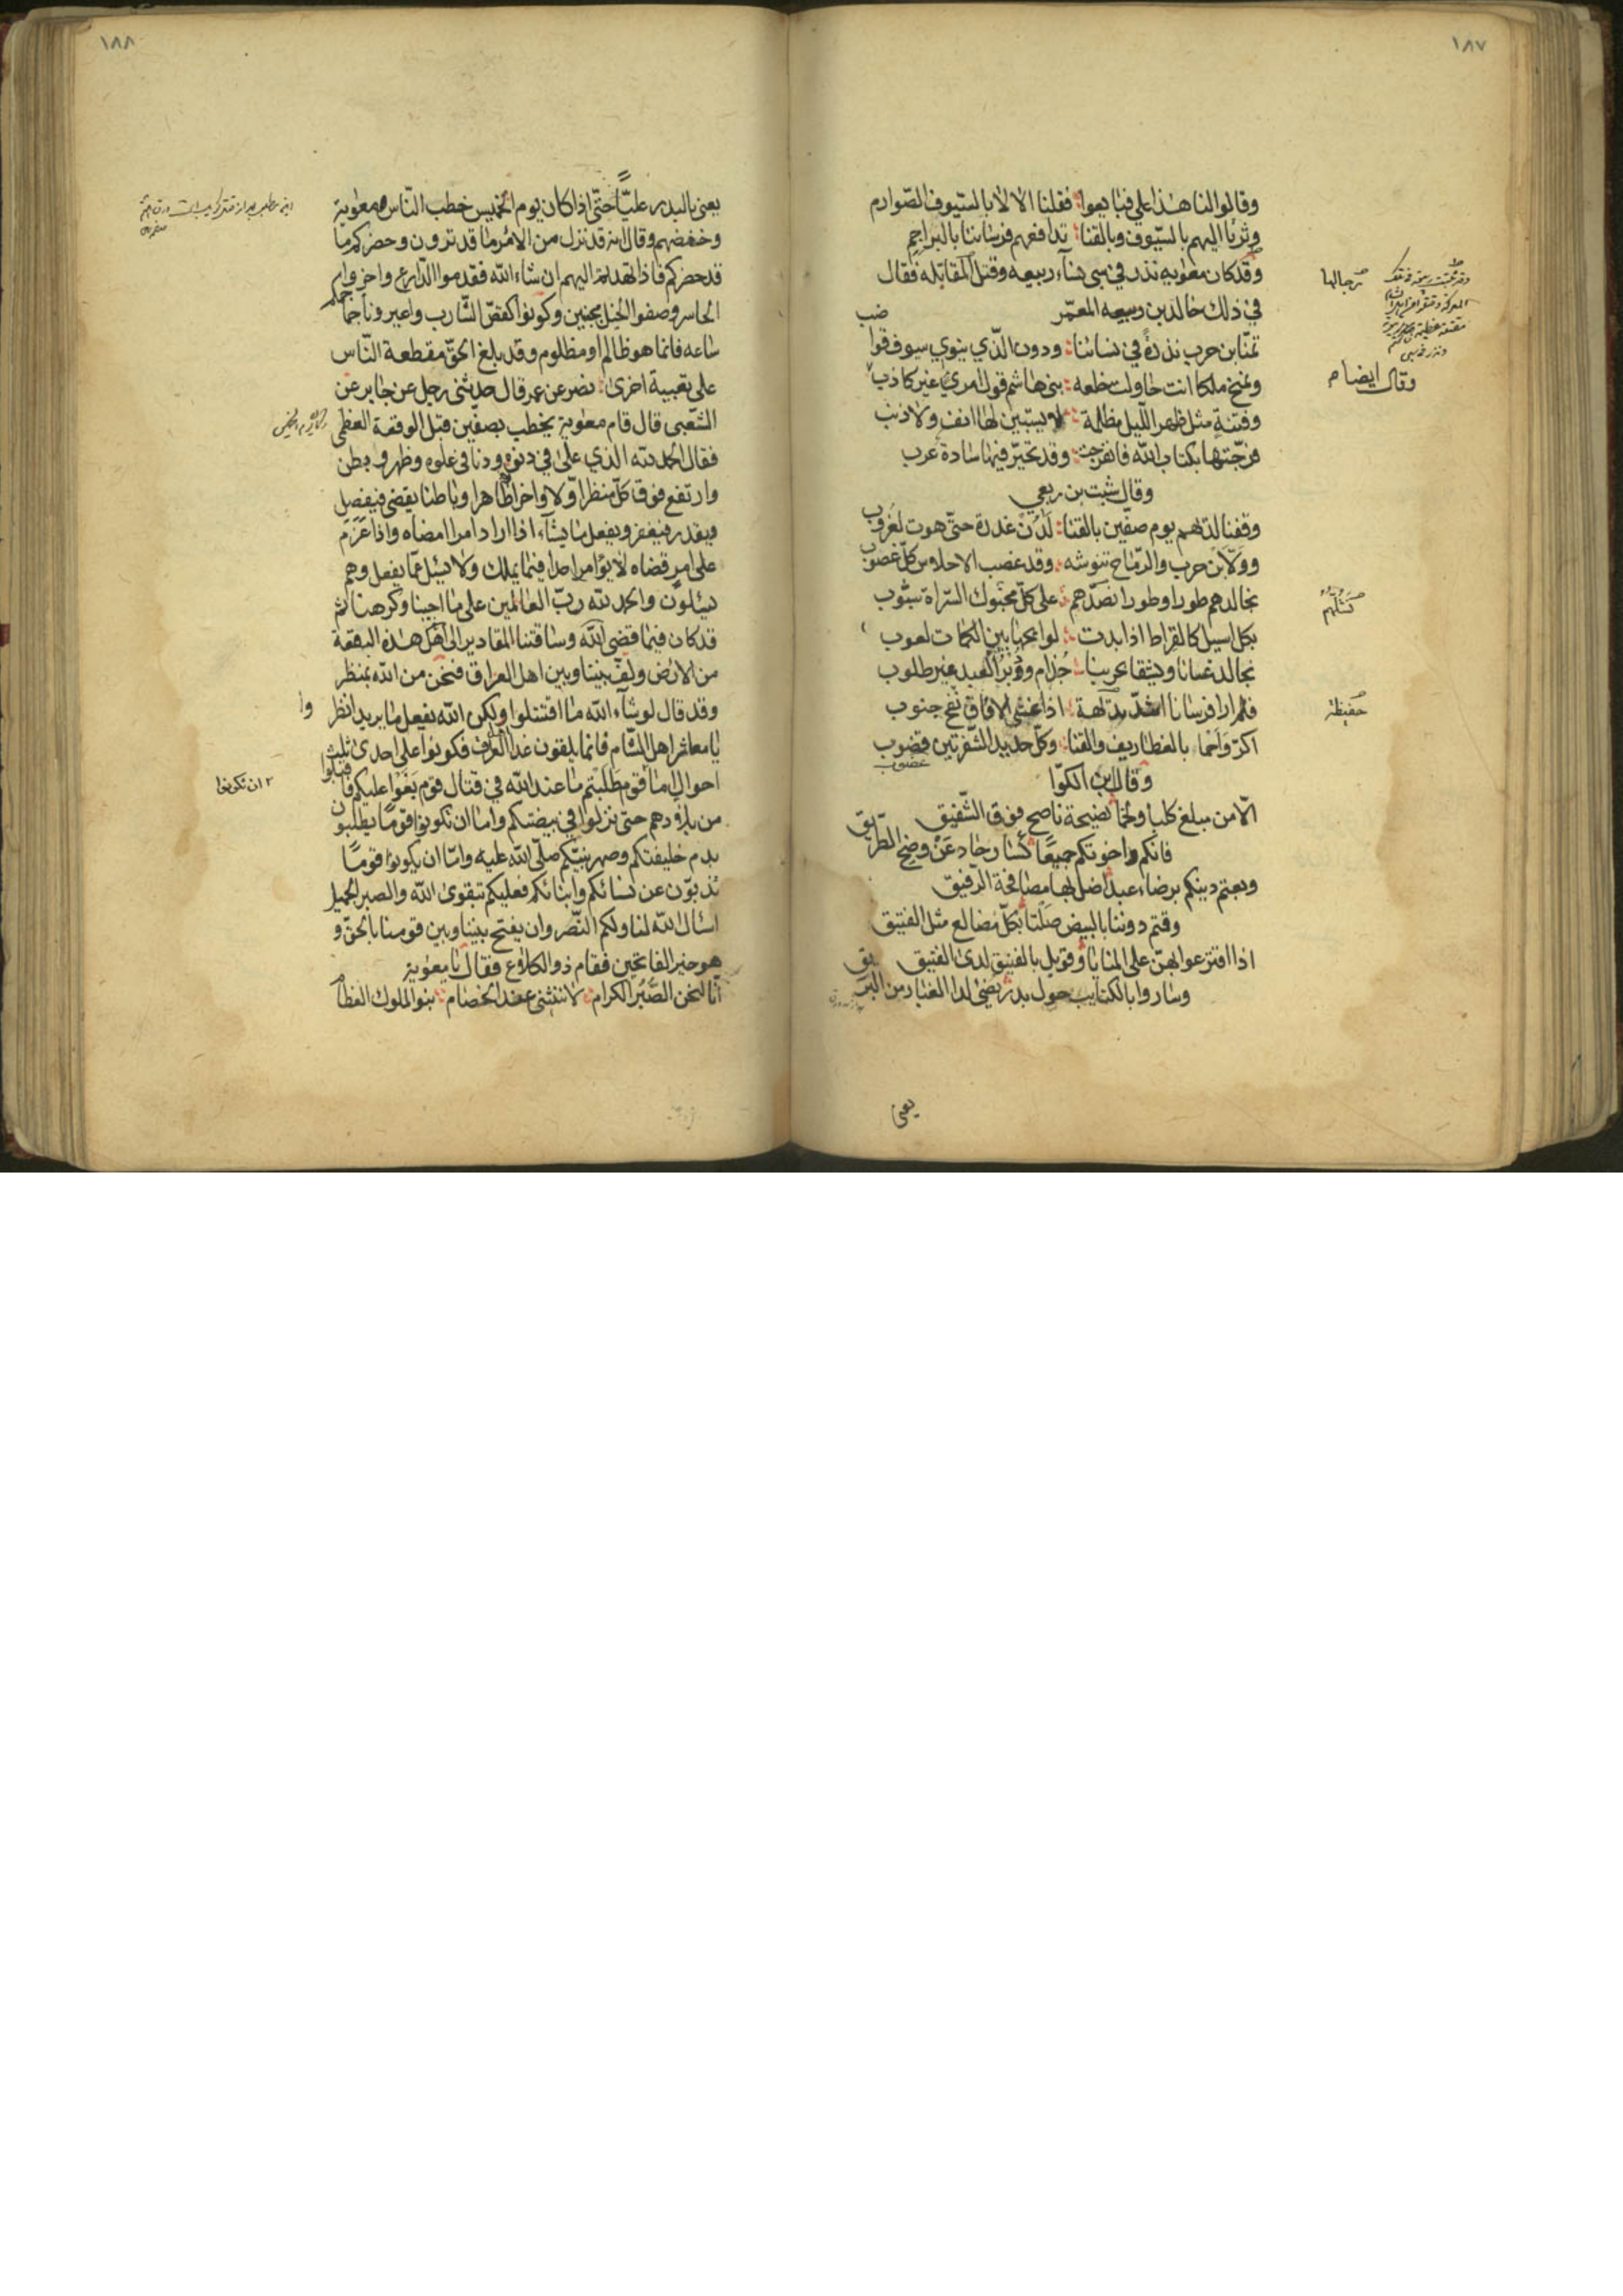 ١٨٧
وقالوا لنا هذا علي فبايعوا فقلنا الا لا لا بالسيوف الصوارم
وثرنا اليهم بالسيوف وبالقنا تدافعهم فرساننا بالبراجم
وقد كان معوية نذر في سبي نساء ربيعه وقتل المقاتله فقال
في ذلك خالد بن ربيعه المعمر
تمنا بن حرب نذرة في نسائنا ودون الذي ينوي سيوف قواضب
ونمنح ملكا انت حاولت خلعه بني هاشم قول امرئ غير كاذب
وقال ايضا
وفتنة مثل ظهر الليل مظلمة لا يستبين لها انف ولا ذنب
فرجتها بكتاب الله فانفرجت وقد تحير فيها سادة عرب
وقال شبث بن ربعي
وقفنا لديهم يوم صفين بالقنا لدن غدوة حتى هوت لغروب
وولا بن حرب والرماح تنوشه وقد غضب الاحلاس كل غضوب
نجالدهم طورا وطورا نصدهم على كل محبوك السراة شبوب
بكل اسيل كالقراط اذا بدت لوائحها بين الكمات لعوب
نجالد غسانا ويشقا بحربنا جذام ووتر العبد غير طلوب
فلم ار افرسانا اشد بديهة اذا غشي الافاق نفح جنوب
حفيظة
اكر واحما بالغطاريف والقنا وكل حديد الشفرتين قضوب
وقال ابن الكوا
الا من مبلغ كلبا ولخما نصيحة ناصح فوق الشفيق
فانكم واخوتكم جميعا كسار حاد عن وضح الطريق
وبعتم دينكم برضاء عبد اضل بها مصافحة الرفيق
وقتم دوننا بالبيض صلتا بكل مضالع مثل الفتيق
اذا افترعوا لهن على المنايا وقوبل بالفنيق لدى الفتيق
وساروا بالكتايب حول بدر يضئ لدا الغبار من البريق
يعني
١٨٨
يعني بالبدر عليا حتى اذا كان يوم الخميس خطب الناس معوية
وحضضهم وقال انه قد نزل من الامر ما قد ترون وحضركم ما
قد حضركم فاذا نهدتم اليهم ان شاء الله فقدموا الدارع واخروا
الحاسر وصفوا الخيل مجنبين وكونوا كقص الشارب واعيرونا جماجمكم
ساعه فانما هو ظالم او مظلوم وقد بلغ الحق مقطعة الناس
على تعبية اخرى نصر عن عمر قال حدثني رجل عن جابر عن
الشعبي قال قام معوية يخطب بصفين قبل الوقعة العظمى
فقال الحمد لله الذي على في دنوه ودنا في علوه وظهر وبطن
وارتفع فوق كل منظر اولا واخرا ظاهرا وباطنا يقضي فيفصل
ويقدر فيغفر ويفعل ما يشاء اذا اراد امرا امضاه واذا عزم
على امر قضاه لا يؤامر احدا فيما يملك ولا يسئل عما يفعل وهم
يسئلون والحمد لله رب العالمين على ما احببنا وكرهنا ثم
قد كان فيما قضى الله وساقتنا المقادير الى اهل هذه البقعة
من الارض ولف بيننا وبين اهل العراق فنحن من الله بمنظر
وقد قال لو شاء الله ما اقتتلوا ولكن الله يفعل ما يريد انظر وا
يا معاشر اهل الشام فانما يلقون غدا العراق فكونوا على احدى ثلث
احوال اما قوم طلبتم ما عند الله في قتال قوم بغوا عليكم فاقبلوا
ان تكونوا
من بلادهم حتى نزلوا في بيضتكم واما ان تكونوا قوما يطلبون
بدم خليفتكم وصهر نبيكم صلى الله عليه واما ان يكونوا قوما
تذبون عن نسائكم وابنائكم فعليكم بتقوى الله والصبر الجميل
اسئال الله لنا ولكم النصر وان يفتح بيننا وبين قومنا بالحق و
هو خير الفاتحين فقام ذو الكلاع فقال يا معوية
انا لنحن الصبر الكرام لا ننثني عند الخصام بنو الملوك العظام